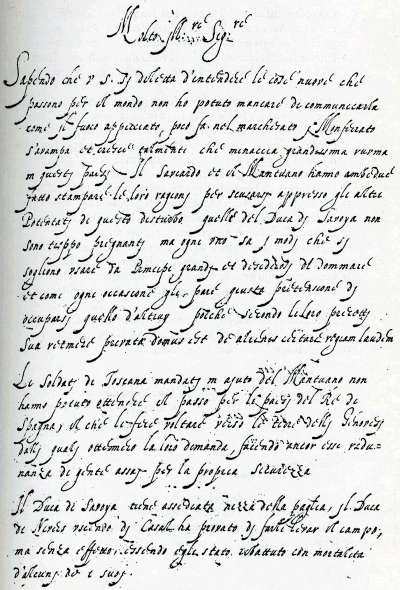 Molto Ill.re Sig.re
Sapendo che V S. si diletta d'intendere le cose nuove che
passono per il mondo non ho potuto mancare di communicarla
come il fuoco appicciato, poco fa nel marchesato Monferrato
s'avampa et cresce talmente che minaccia grandissima ruina
in questi paesi Il Savoiardo et il Mantuano hanno ambedue
fatto stampare le loro ragioni per scusarsi appresso gli altri
Potentati di questo disturbo quelle del Duca di Savoya non
sono troppo pregnanti ma ogni uno sa i modi che si
sogliono usare da Principi grandi et desiderosi di dominare
et come ogni occasione gli pare giusta pretensione di
occuparsi quello d'altruy poiche secondo li loro precetti
Sua retinere privata domus est de alienis certare regiam laudem
Li Soldati di Toscana mandati in ajuto del Mantuano non
hanno potuto ottenere il passo per li paesi del Re di
Spagna, il che li fece voltare verso le terre delli Genovesi
dalli quali ottennero la loro demanda, facendo ancor essi radu-
nanza di gente assay per la propria sicurezza
Il Duca di Savoya tiene assediata nizza della paglia, il Duca
di Nivers uscendo di Casal ha provato di farli levar il campo,
ma senza effetto, essendo egli stato ributtato con mortalita
d'alcuni de i suoi.